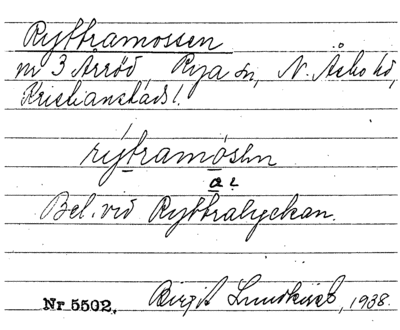 Ryttramossen
nr 3 Arröd, Rya sn, N. Åsbo hd,
Kristianstads l.
rýtramósṇ
a?
Bel. vid Ryttralyckan.
Nr 5502. Birgit Lundkvist, 1938.